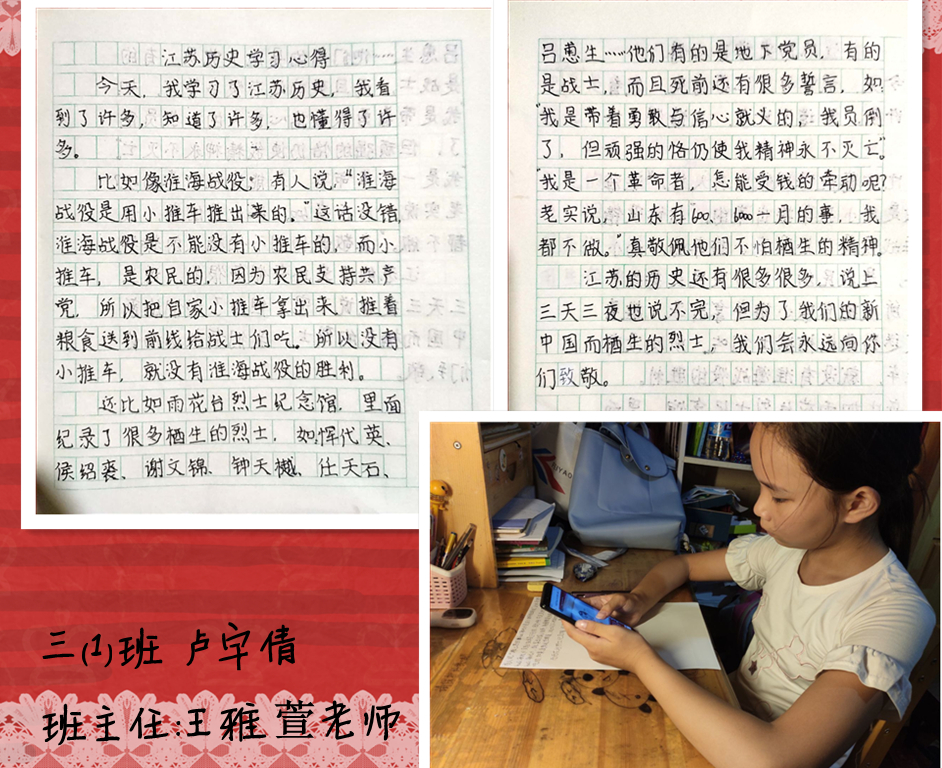 江苏历史学习心得
今天，我学习了江苏历史，我看
到了许多，知道了许多，也懂得了许
多。
比如像淮海战役，有人说，“淮海
战役是用小推车推出来的。”这话没错，
淮海战役是不能没有小推车的，而小
推车，是农民的，因为农民支持共产
党，所以把自家小推车拿出来，推着
粮食送到前线给战士们吃。所以没有
小推车，就没有淮海战役的胜利。
还比如雨花台烈士纪念馆，里面
纪录了很多栖生的烈士，如恽代英、
侯绍裘、谢文锦、钟天樾、任天石、
吕惠生……他们有的是地下党员，有的
是战士，而且死前还有很多誓言，如
“我是带着勇敢与信心就义的。我员倒
了，但顽强的恪仍使我精神永不灭亡”
“我是一个革命者，怎能受钱的牵动呢？
老实说，山东有600、1000一月的事，我
都不做。”真敬佩他们不怕栖生的精神。
江苏的历史还有很多很多，说上
三天三夜也说不完，但为了我们的新
中国而栖生的烈士，我们会永远向你
们致敬。
三(1)班 卢宇倩
班主任:王雅萱老师